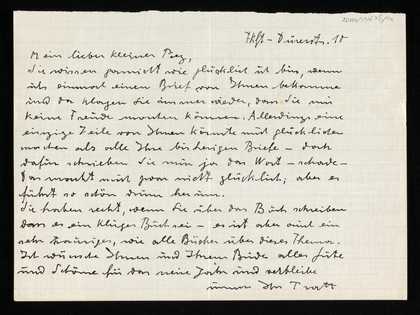 Ffft - Dürerstr. 10
Mein lieber kleiner
Sie wissen garnicht wie glücklich ich bin, wenn
ich einmal einen Brief von Ihnen bekomme
und da klagen Sie immer wieder, dass Sie mir
keine Freude machen können. Allerdings eine
einzige Zeile von Ihnen könnte mich glücklicher
machen als alle Ihre bisherigen Briefe - doch
dafür schrieben Sie mir ja das Wort - schade -
Das macht mich zwar nicht glücklich; aber es
führt so schön drum herum.
Sie haben recht, wenn Sie über das Buch schreiben
dass es ein kluges Buch sei - es ist aber auch ein
sehr trauriges, wie alle Bücher über dieses Thema.
Ich wünsche Ihnen und Ihrem Bruder alles Gute
und Schöne für das neue Jahr und verbleibe
immer Ihr